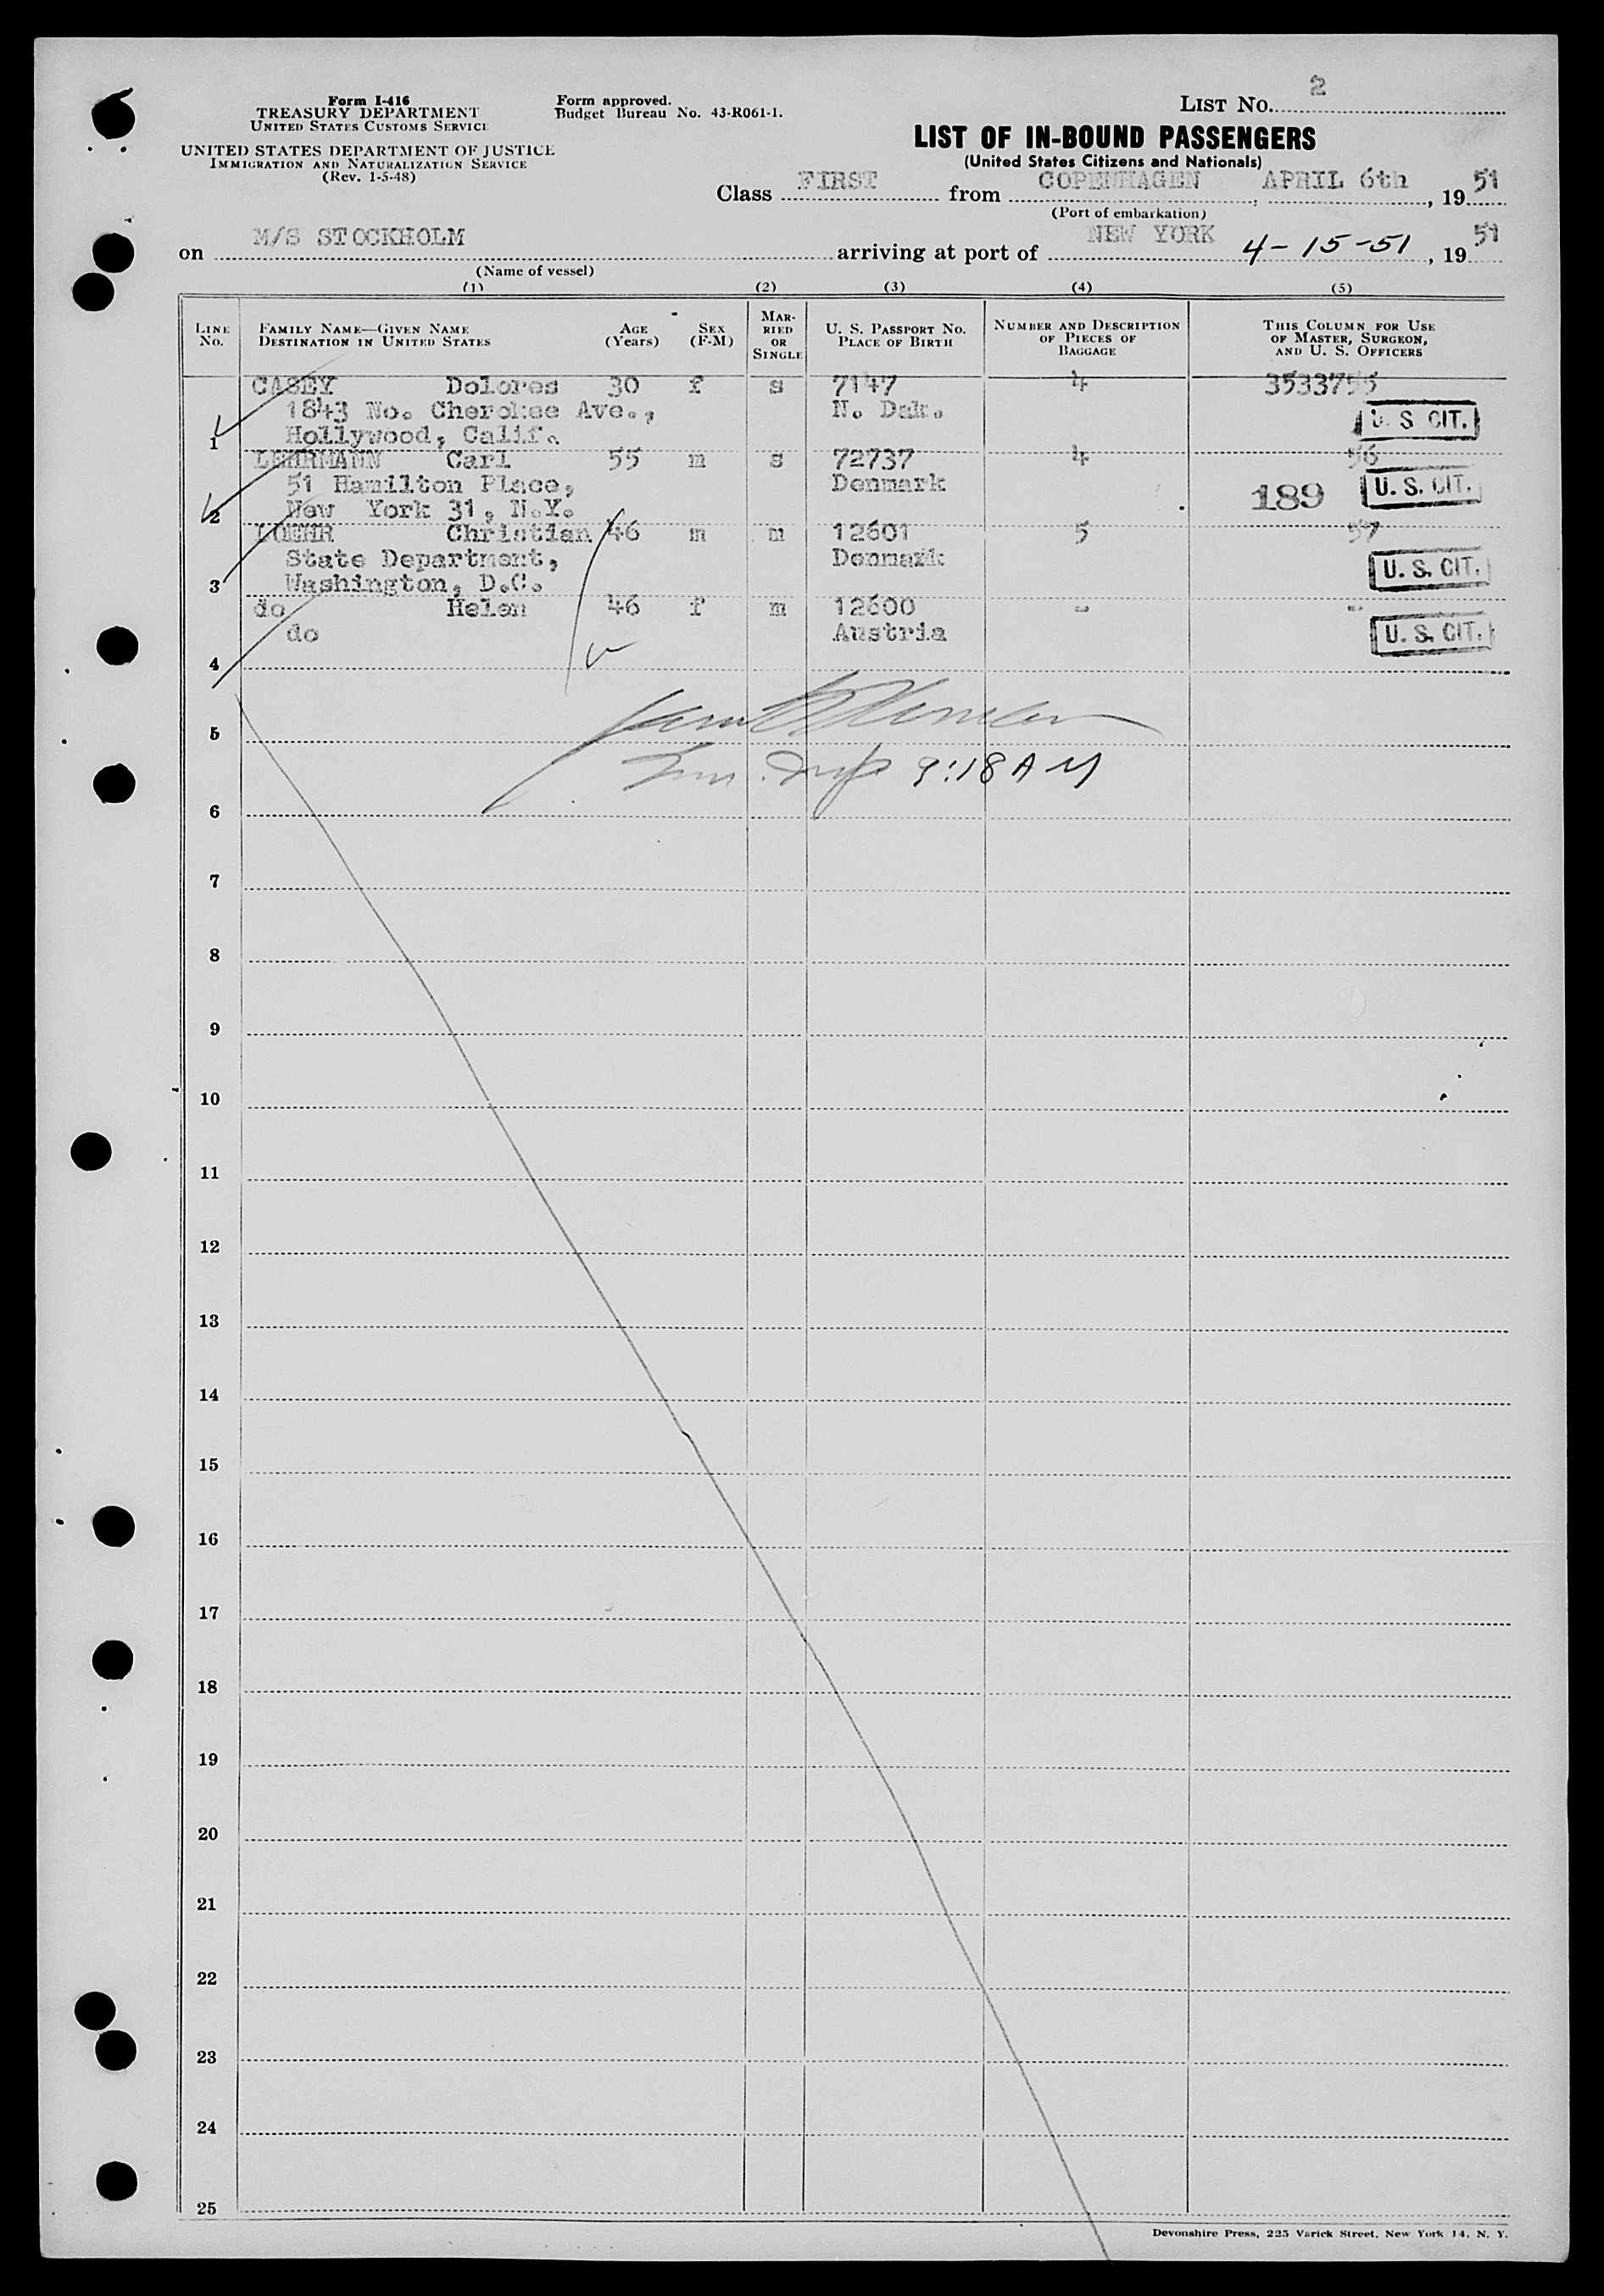 Form I-416
TREASURY DEPARTMENT
UNITED STATES CUSTOMS SERVICE
UNITED STATES DEPARTMENT OF JUSTICE
IMMIGRATION AND NATURALIZATION SERVICE
(Rev. 1-5-48)
Form approved.
Budget Bureau No. 43-R061-1.
LIST NO. 2
LIST OF IN-BOUND PASSENGERS
(United States Citizens and Nationals)
Class FIRST from COPENHAGEN, APRIL 6th, 1951
(Port of embarkation)
on M/S STOCKHOLM arriving at port of NEW YORK 4-15-51, 1951
(Name of vessel)
(1) (2) (3) (4) (5)
LINE NO. FAMILY NAME—GIVEN NAME DESTINATION IN UNITED STATES AGE (Years) SEX (F-M) MARRIED OR SINGLE U. S. PASSPORT NO. PLACE OF BIRTH NUMBER AND DESCRIPTION OF PIECES OF BAGGAGE THIS COLUMN FOR USE OF MASTER, SURGEON, AND U. S. OFFICERS
CASEY Dolores 30 f s 7147 4 3533755
1843 No. Cherokee Ave., N. Dak. U. S. CIT.
1 Hollywood, Calif.
LEHRMANN Carl 55 m s 72737 4 56
51 Hamilton Place, Denmark 189 U. S. CIT.
2 New York 31, N.Y.
LOEHR Christian 46 m m 12601 5 57
State Department, Denmark U. S. CIT.
3 Washington, D.C.
do Helen 46 f m 12600 - -
do Austria U. S. CIT.
4
5
9:18 AM
6
7
8
9
10
11
12
13
14
15
16
17
18
19
20
21
22
23
24
25
Devonshire Press, 225 Varick Street, New York 14, N. Y.